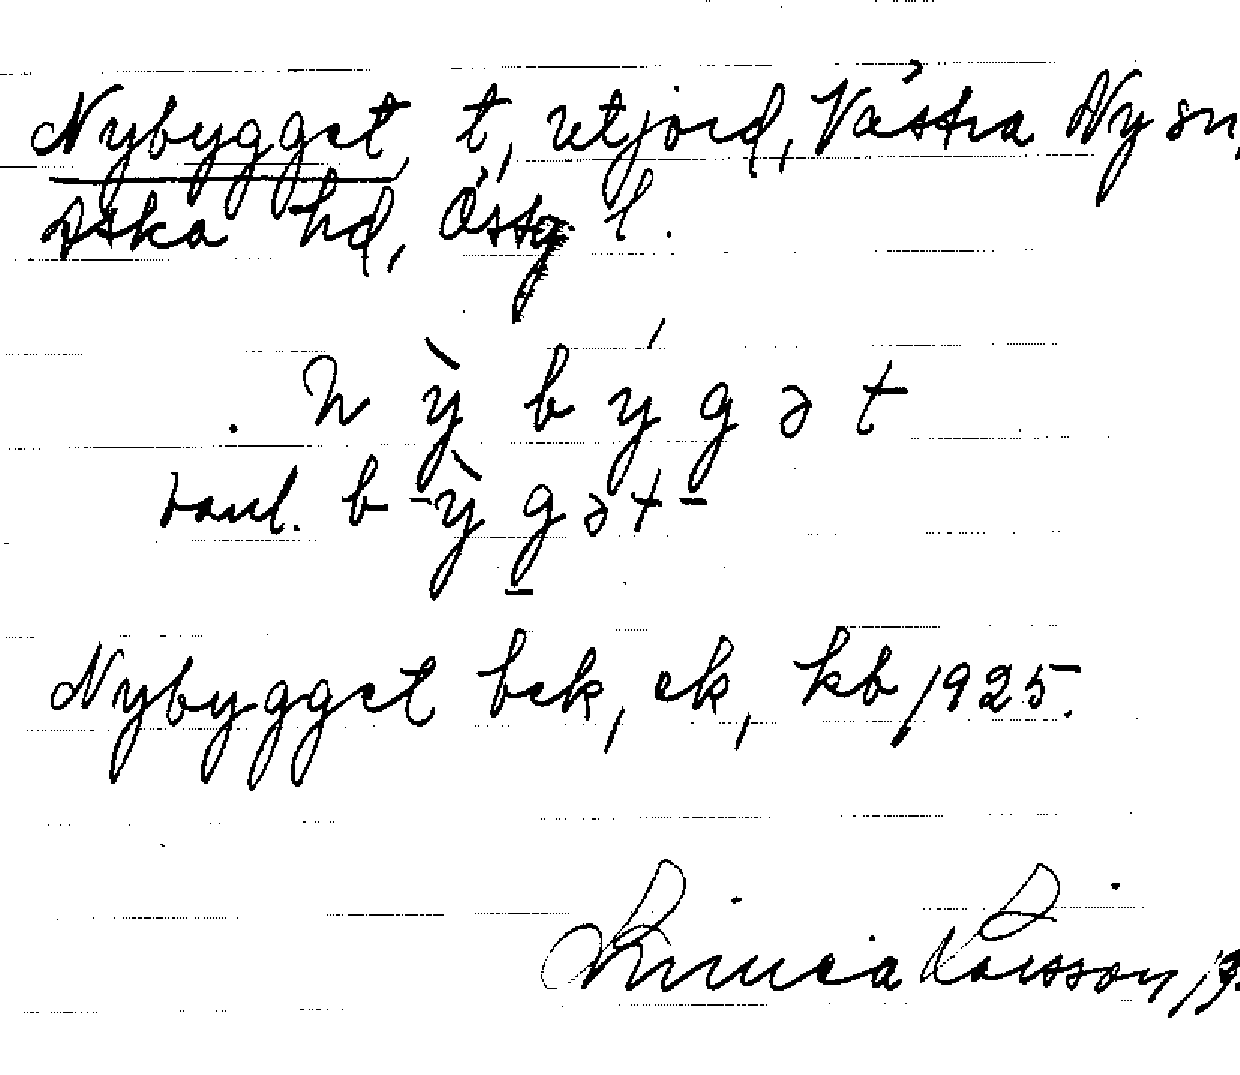 Nybygget, t, utjord, Västra Ny sn,
Aska hd, Östg l.
. n ỳ b ý g ə t
vanl. b - ỳ g ə t -
Nybygget bek, ek, kb 1925.
Linnea Larsson, 19